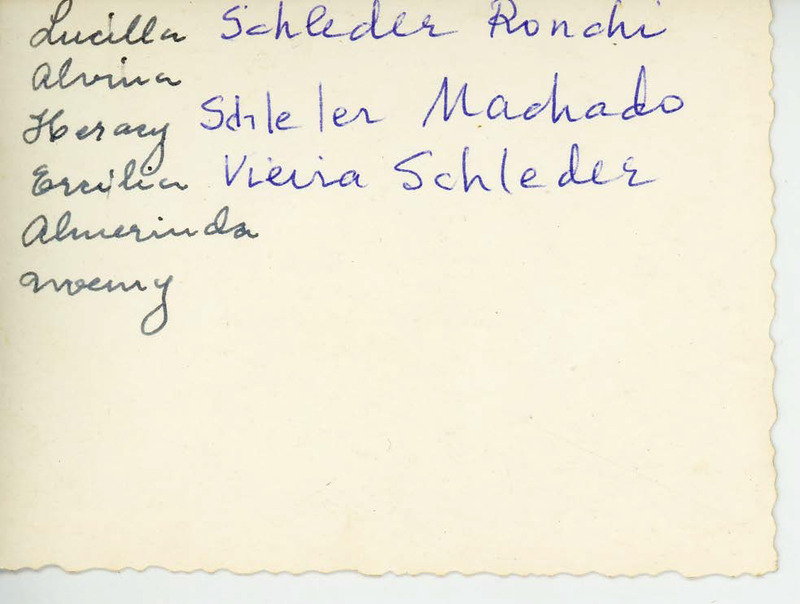 Lucilla Schleder Ronchi
Alvina
Heracy Schleler Machado
Ercilia Vieira Schleder
Almerinda
Noemy